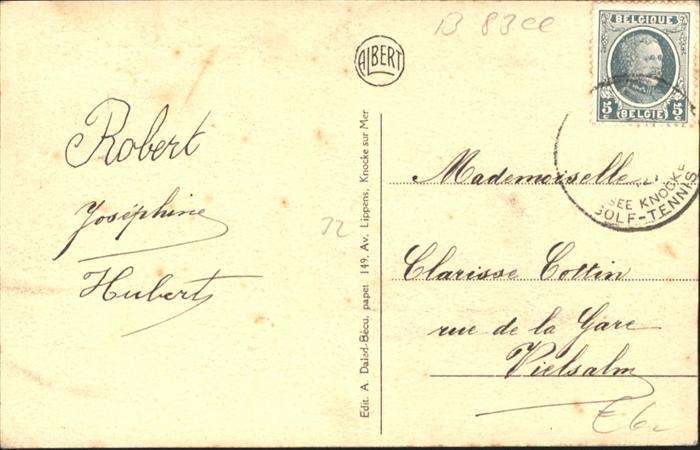 B 83cc
ALBERT
BELGIQUE
5 5
BELGIE
Robert
Joséphine
Hubert
22
Edit. A. Daled-Bécu, papet 149, Av. Lippens, Knocke sur Mer
SEE KNOCKE
GOLF-TENNIS
Mademoiselle
Clarisse Cottin
rue de la Gare
Vielsalm